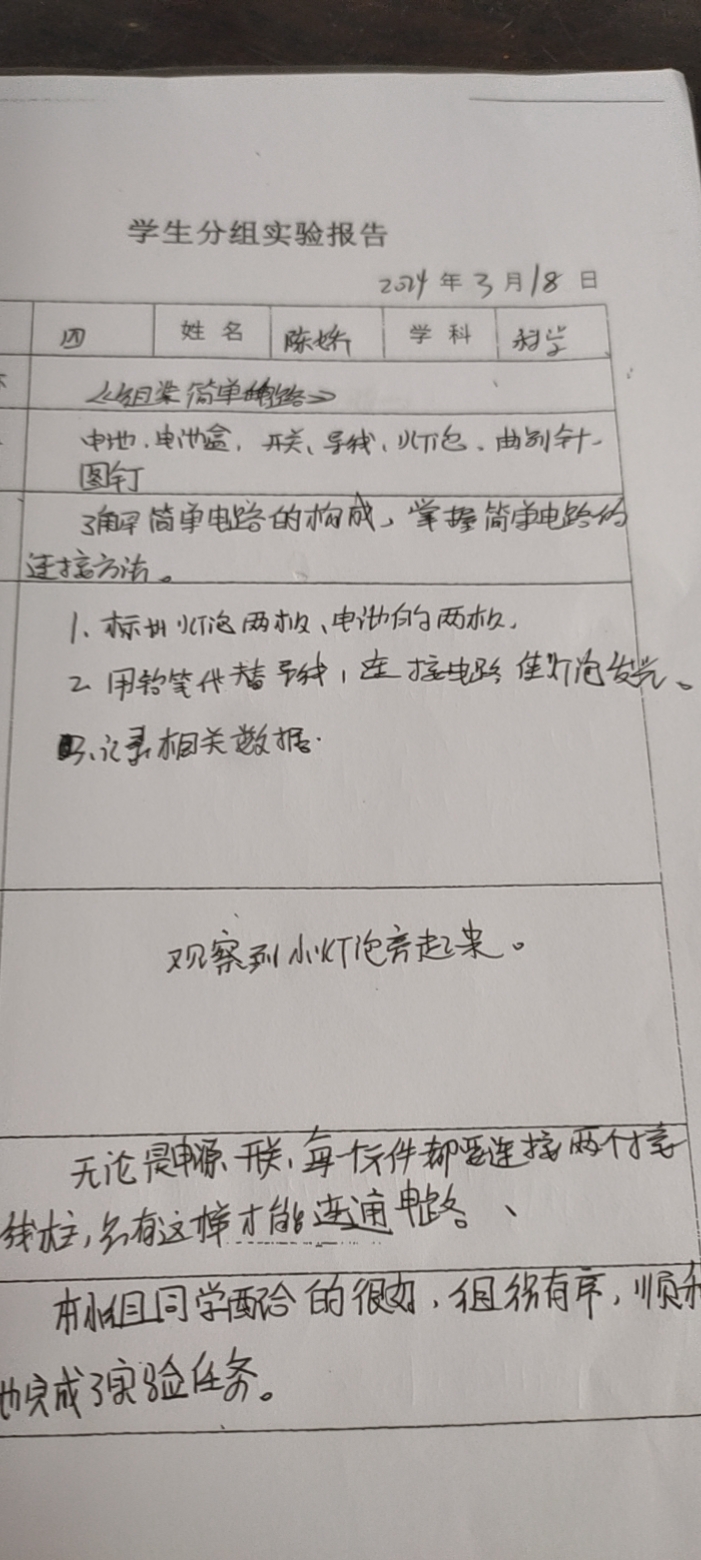 学生分组实验报告
2024年3月18日
四 姓名 陈娇 学科 科学
《组装简单电路》
电池、电池盒、开关、导线、灯泡、曲别针、
图钉
了解简单电路的构成，掌握简单电路的
连接方法。
1、标出灯泡两极、电池的两极。
2、用铅笔代替导线，连接电路使灯泡发光。
3、记录相关数据.
观察到小灯泡亮起来。
无论是电源、开关，每个元件都要连接两个接
线柱，只有这样才能连通电路。、
本小组同学配合的很好，组织有序，顺利
地完成了实验任务。